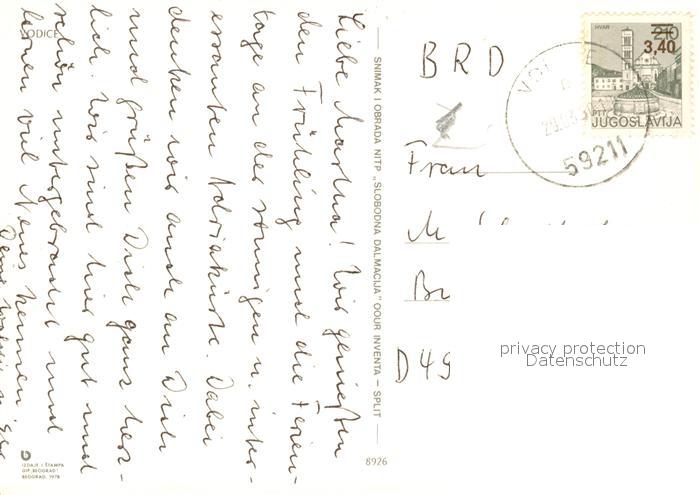 VODICE
Liebe Martina! Wir genießen
den Frühling und die Ferien-
tage an der sonnigen u. inter-
essanten Adriaküste. Dabei
denken wir auch an Dich
und grüßen Dich ganz herz-
lich. Wir sind hier gut und
schön untergebracht und
lernen viel Neues kennen
SNIMAK I OBRADA NITP „SLOBODNA DALMACIJA" OOUR INVENTA — SPLIT —
IZDAJE I ŠTAMPA
GIP „BEOGRAD"
BEOGRAD, 1978
8926
HVAR
210
3,40
PTT
JUGOSLAVIJA
59211
BRD
Frau
M
Br
D 49
privacy protection
Datenschutz